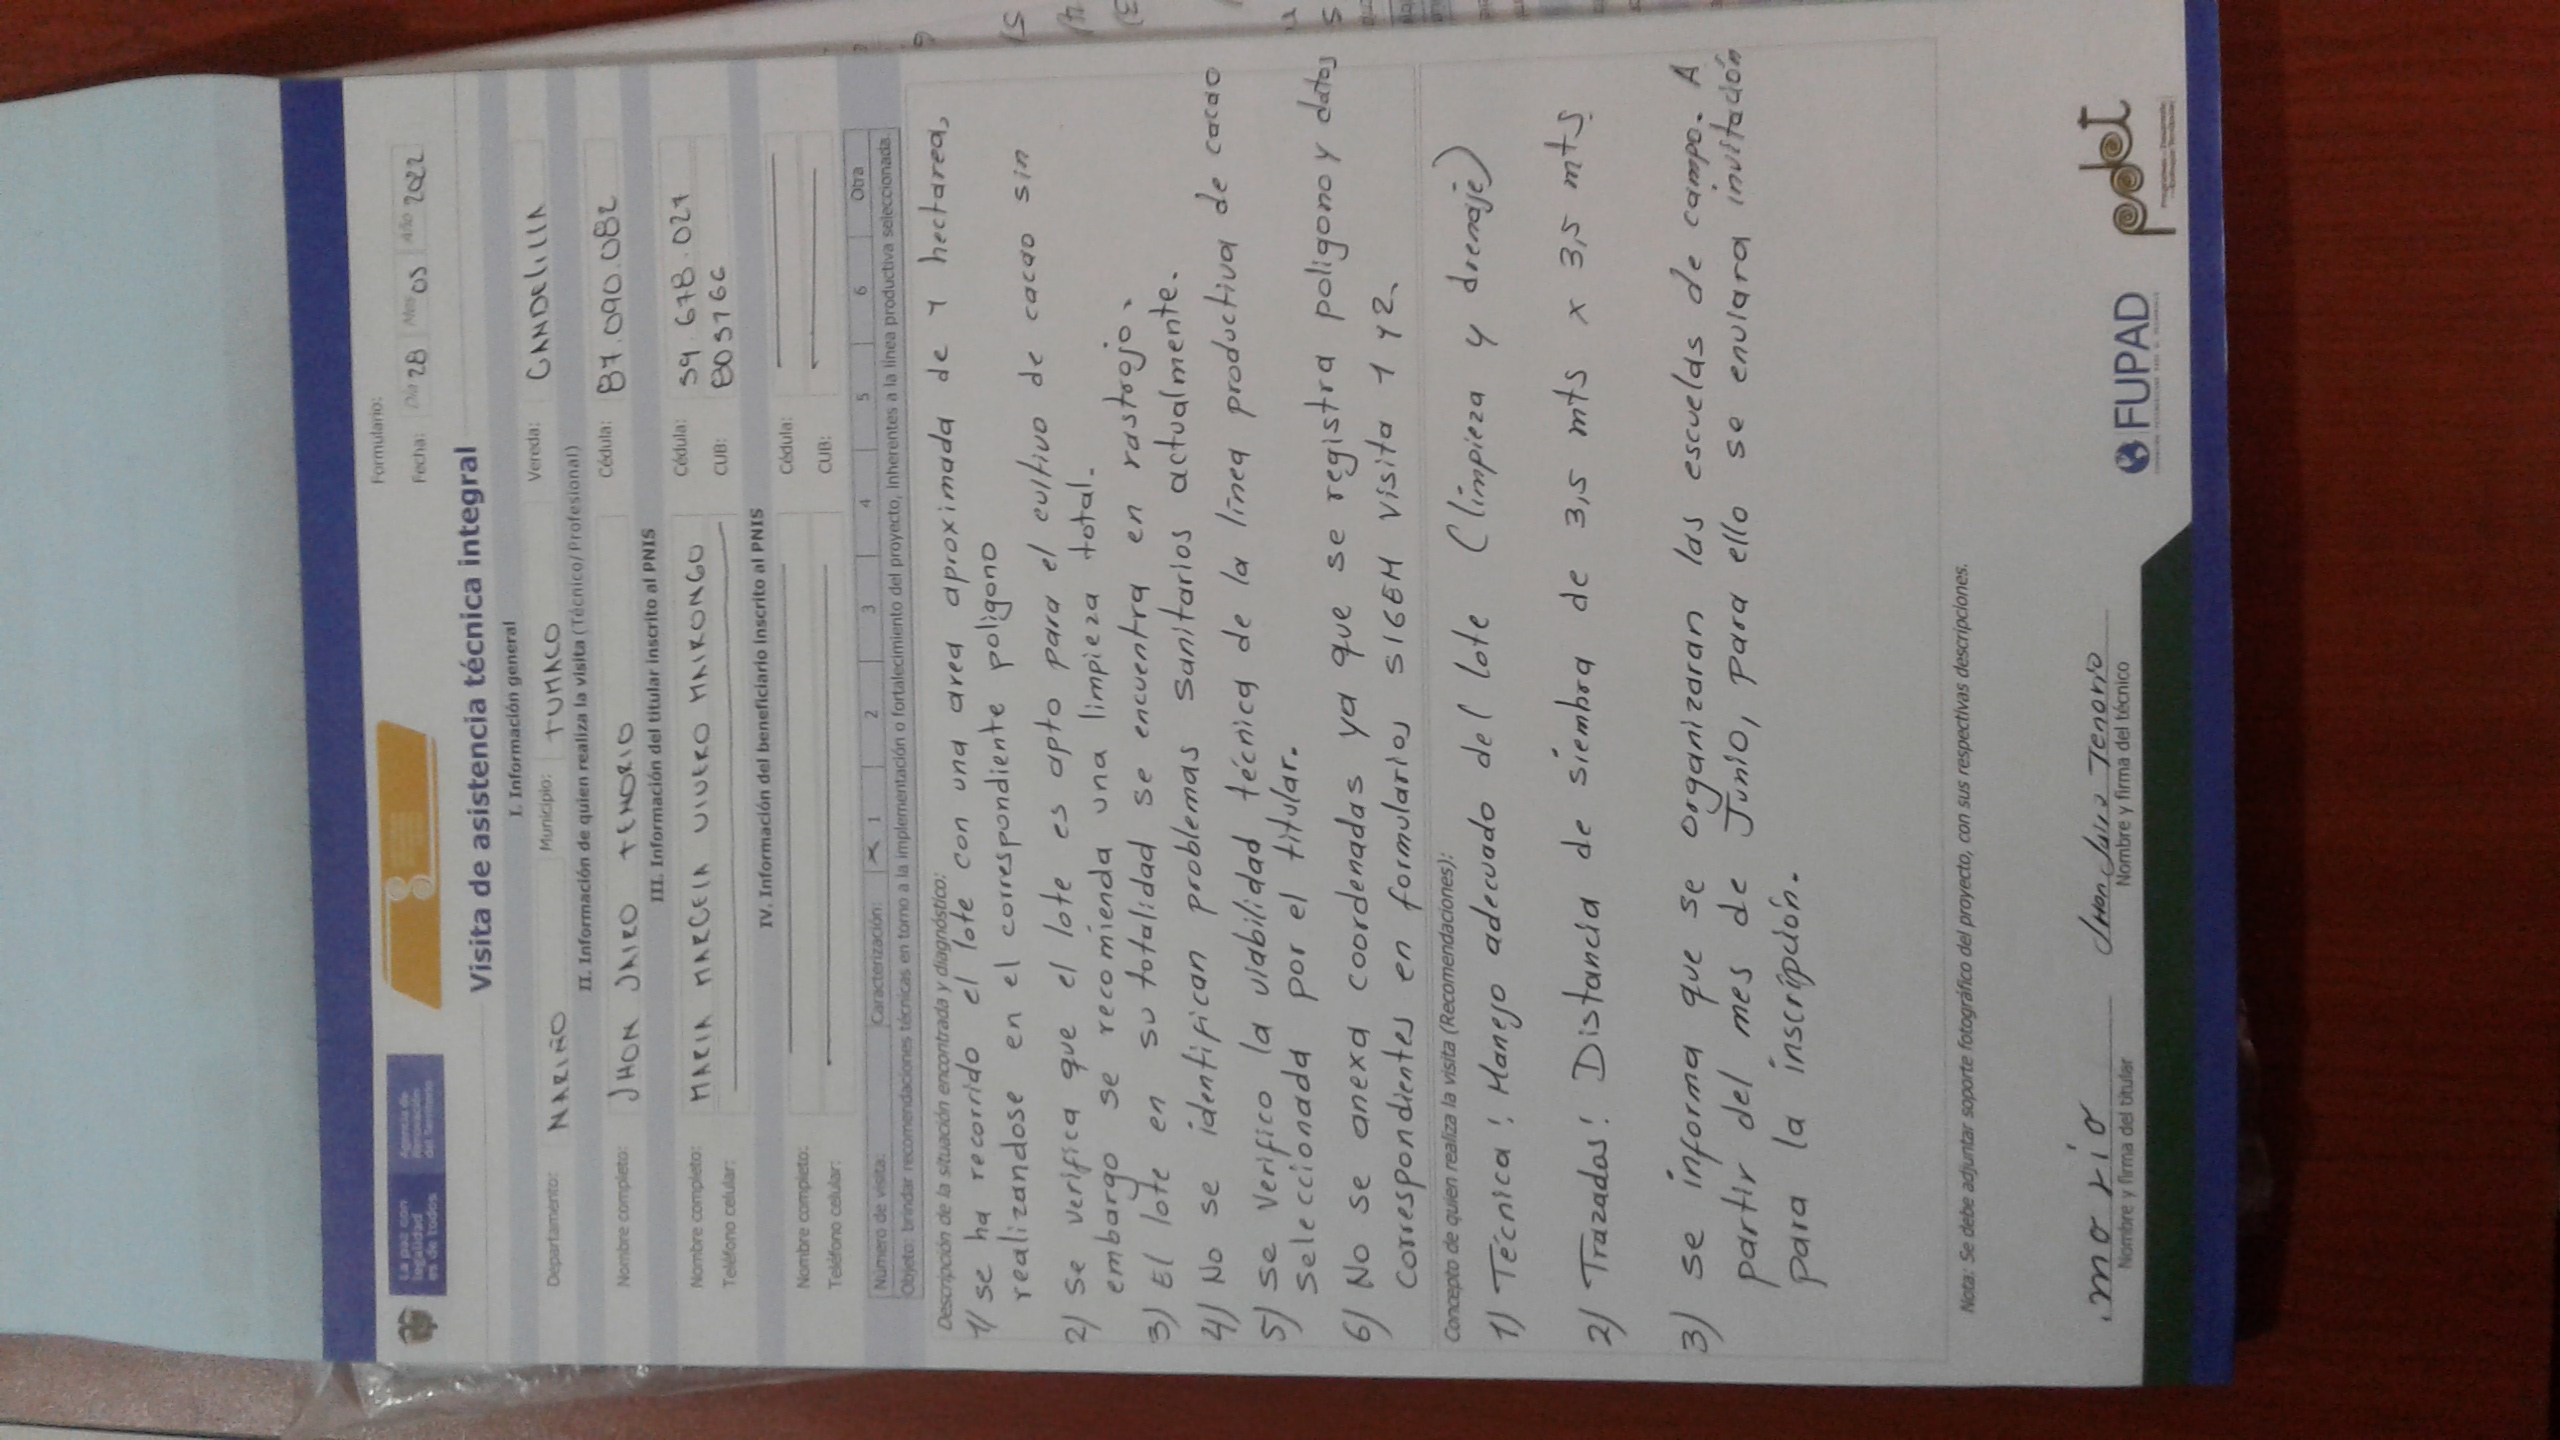 La paz con
legalidad
es de todos
Agencia de
Renovación
del Territorio
Formulario:
Fecha: Día 28 Mes 05 Año 2022
Visita de asistencia técnica integral
I. Información general
Departamento: NARIÑO Municipio: TUMACO Vereda: CANDELILLA
II. Información de quien realiza la visita (Técnico/Profesional)
Nombre completo: JHON JAIRO TENORIO Cédula: 87.090.082
III. Información del titular inscrito al PNIS
Nombre completo: MARIA MARCELA VIVERO MAIRONGO Cédula: 59.678.027
Teléfono celular: CUB: 803766
IV. Información del beneficiario inscrito al PNIS
Nombre completo: Cédula:
Teléfono celular: CUB:
Número de visita: Caracterización: X 1 2 3 4 5 6 Otra
Objeto: brindar recomendaciones técnicas en torno a la implementación o fortalecimiento del proyecto, inherentes a la línea productiva seleccionada.
Descripción de la situación encontrada y diagnóstico:
1) se ha recorrido el lote con una area aproximada de 1 hectarea,
realizandose en el correspondiente poligono
2) se verifica que el lote es apto para el cultivo de cacao sin
embargo se recomienda una limpieza total.
3) El lote en su totalidad se encuentra en rastrojo.
4) No se identifican problemas sanitarios actualmente.
5) se Verifico la viabilidad técnica de la línea productiva de cacao
seleccionada por el titular.
6) No se anexa coordenadas ya que se registra poligono y datos
correspondientes en formularios SIGEM visita 1 y 2.
Concepto de quien realiza la visita (Recomendaciones):
1) Técnica: Manejo adecuado del lote (limpieza y drenaje)
2) Trazados: Distancia de siembra de 3,5 mts x 3,5 mts
3) se informa que se organizaran las escuelas de campo. A
partir del mes de Junio, para ello se enviara invitación
para la inscripción.
Nota: Se debe adjuntar soporte fotográfico del proyecto, con sus respectivas descripciones.
maria Jhon Jairo Tenorio
Nombre y firma del titular Nombre y firma del técnico
FUPAD
pdet